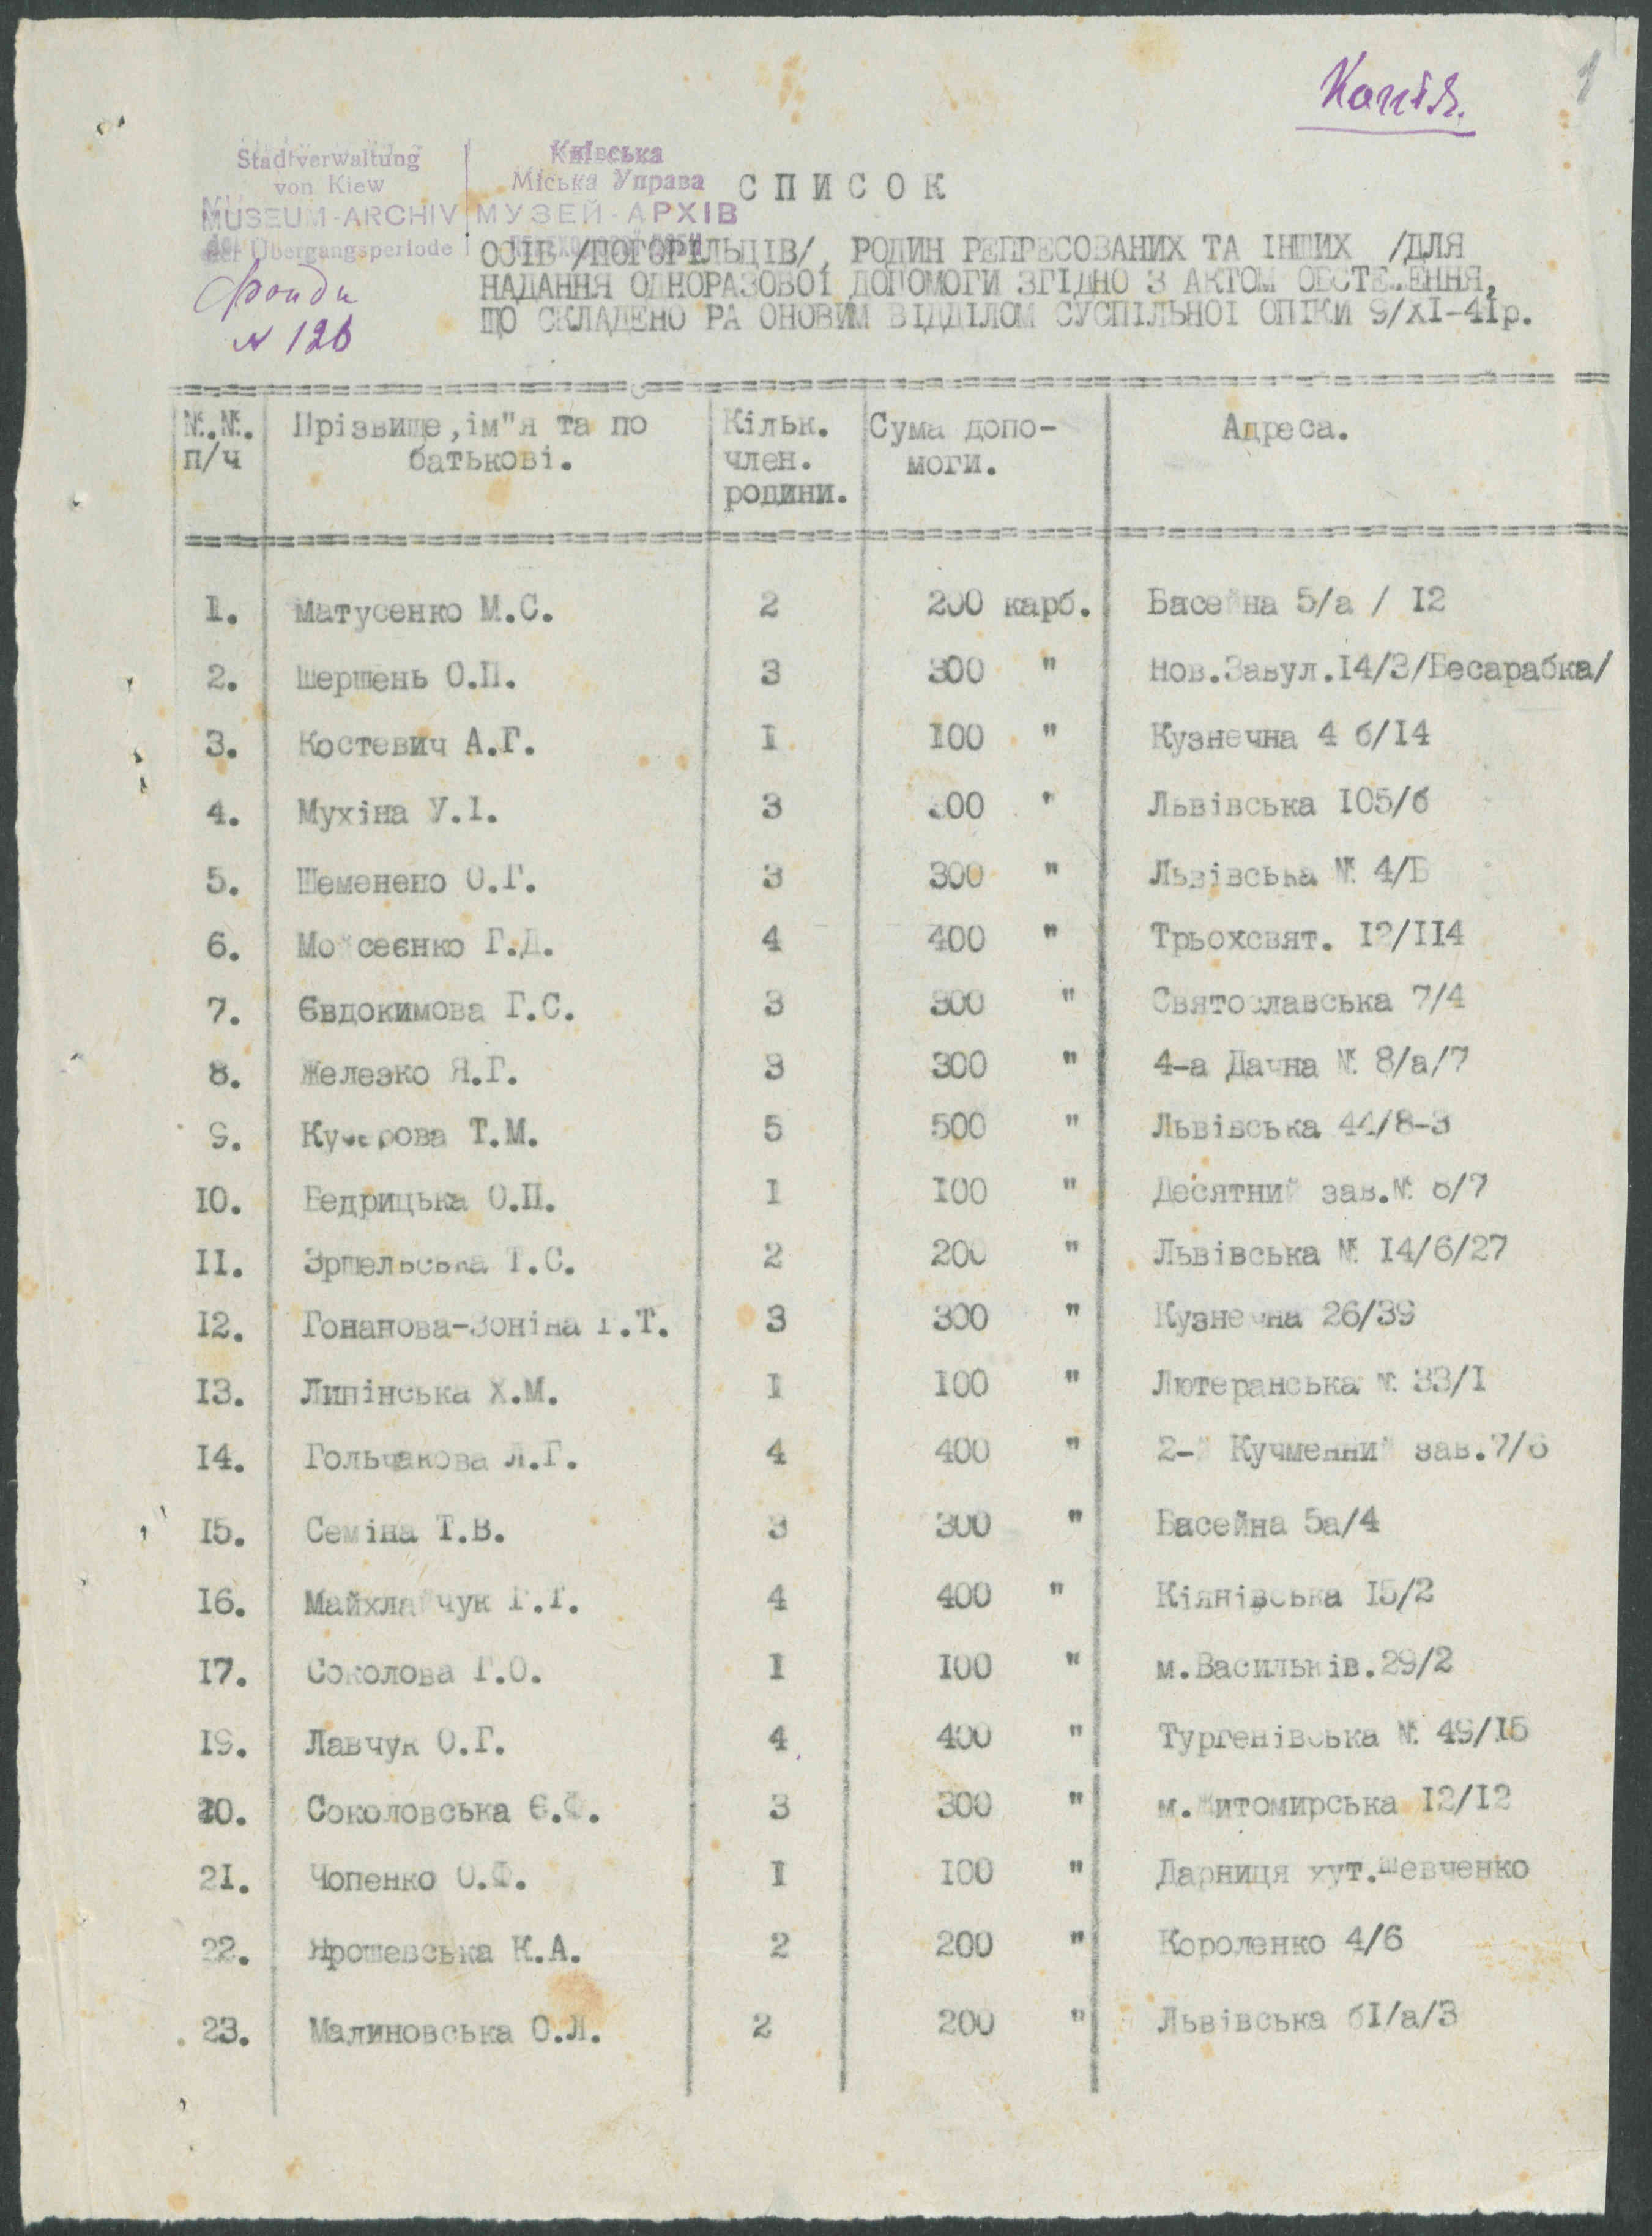 Копія.
1
Stadtverwaltung
von Kiew
MUSEUM-ARCHIV
der Übergangsperiode
Київська
Міська Управа
МУЗЕЙ-АРХІВ
Фонди
N 126
СПИСОК
ОСІБ /ПОГОРІЛЬЦІВ/, РОДИН РЕПРЕСОВАНИХ ТА ІНШИХ /ДЛЯ
НАДАННЯ ОДНОРАЗОВОЇ ДОПОМОГИ ЗГІДНО З АКТОМ ОБСТЕЖЕННЯ,
ЩО СКЛАДЕНО РА ОНОВИМ ВІДДІЛОМ СУСПІЛЬНОІ ОПІКИ 9/ХІ-41р.
№.№. п/ч Прізвище,ім"я та по батькові. Кільк. член. родини. Сума допо-моги. Адреса.
1. Матусенко М.С. 2 200 карб. Басейна 5/а / 12
2. Шершень О.П. 3 300 " Нов.Завул.14/3/Бесарабка/
3. Костевич А.Г. 1 100 " Кузнечна 4 б/14
4. Мухіна У.І. 3 300 " Львівська 105/6
5. Шеменено О.Г. 3 300 " Львівська № 4/Б
6. Мойсеєнко Г.Д. 4 400 " Трьохсвят. 12/114
7. Євдокимова Г.С. 3 300 " Святославська 7/4
8. Железко Я.Г. 3 300 " 4-а Дачна № 8/а/7
9. Кучерова Т.М. 5 500 " Львівська 44/8-3
10. Бедрицька О.П. 1 100 " Десятний зав.№ 8/7
11. Зршельська Т.С. 2 200 " Львівська № 14/6/27
12. Гонапова-Зоніна Г.Т. 3 300 " Кузнечна 26/39
13. Липінська Х.М. 1 100 " Лютеранська № 33/1
14. Гольчакова Л.Г. 4 400 " 2-й Кучменний зав.7/6
15. Семіна Т.В. 3 300 " Басейна 5а/4
16. Майхлайчук Г.Т. 4 400 " Кіянівська 15/2
17. Соколова Г.О. 1 100 " м.Васильків.29/2
19. Лавчук О.Г. 4 400 " Тургенівська № 49/15
20. Соколовська Є.Ф. 3 300 " м.Житомирська 12/12
21. Чопенко О.Ф. 1 100 " Дарниця хут.Шевченко
22. Ярошевська К.А. 2 200 " Короленко 4/6
23. Малиновська О.Л. 2 200 " Львівська 61/а/3